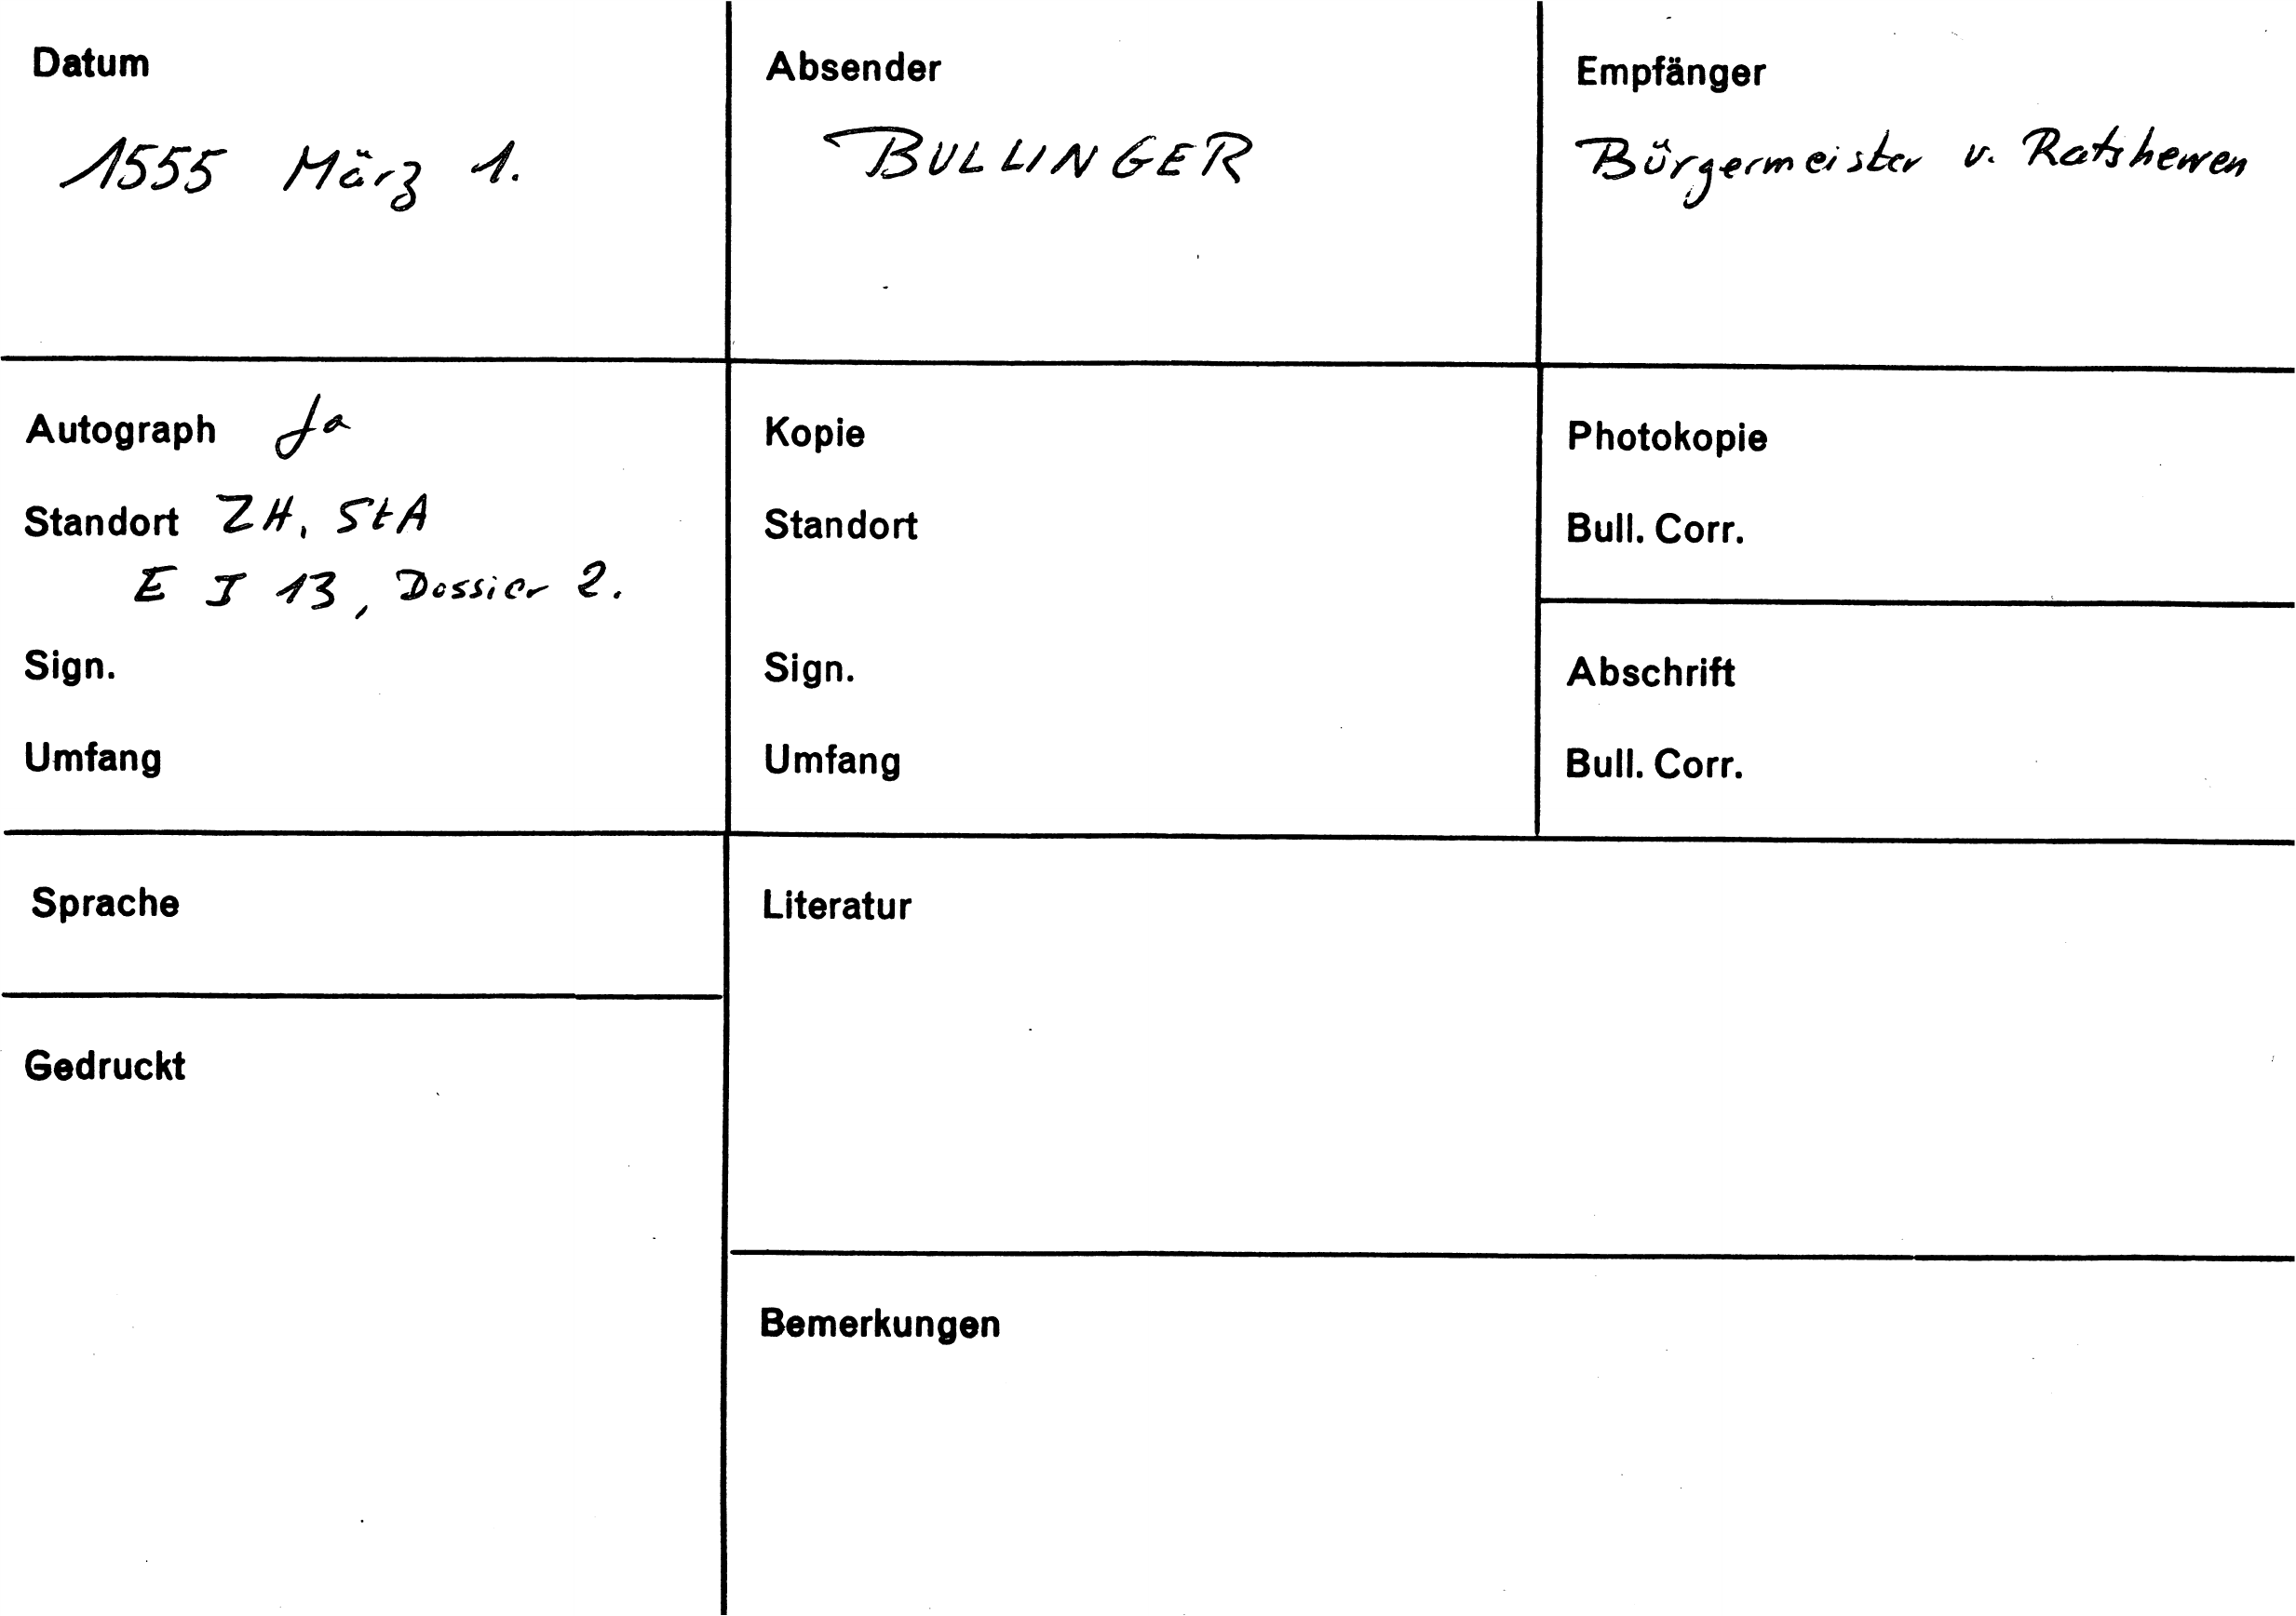 Datum
1555 März 1.
Absender
BULLINGER
Empfänger
Bürgermeister u. Ratsherren
Autograph Ja
Standort ZH, StA
E I 13, Dossier 2.
Sign.
Umfang
Kopie
Standort
Sign.
Umfang
Photokopie
Bull. Corr.
Abschrift
Bull. Corr.
Sprache
Gedruckt
Literatur
Bemerkungen